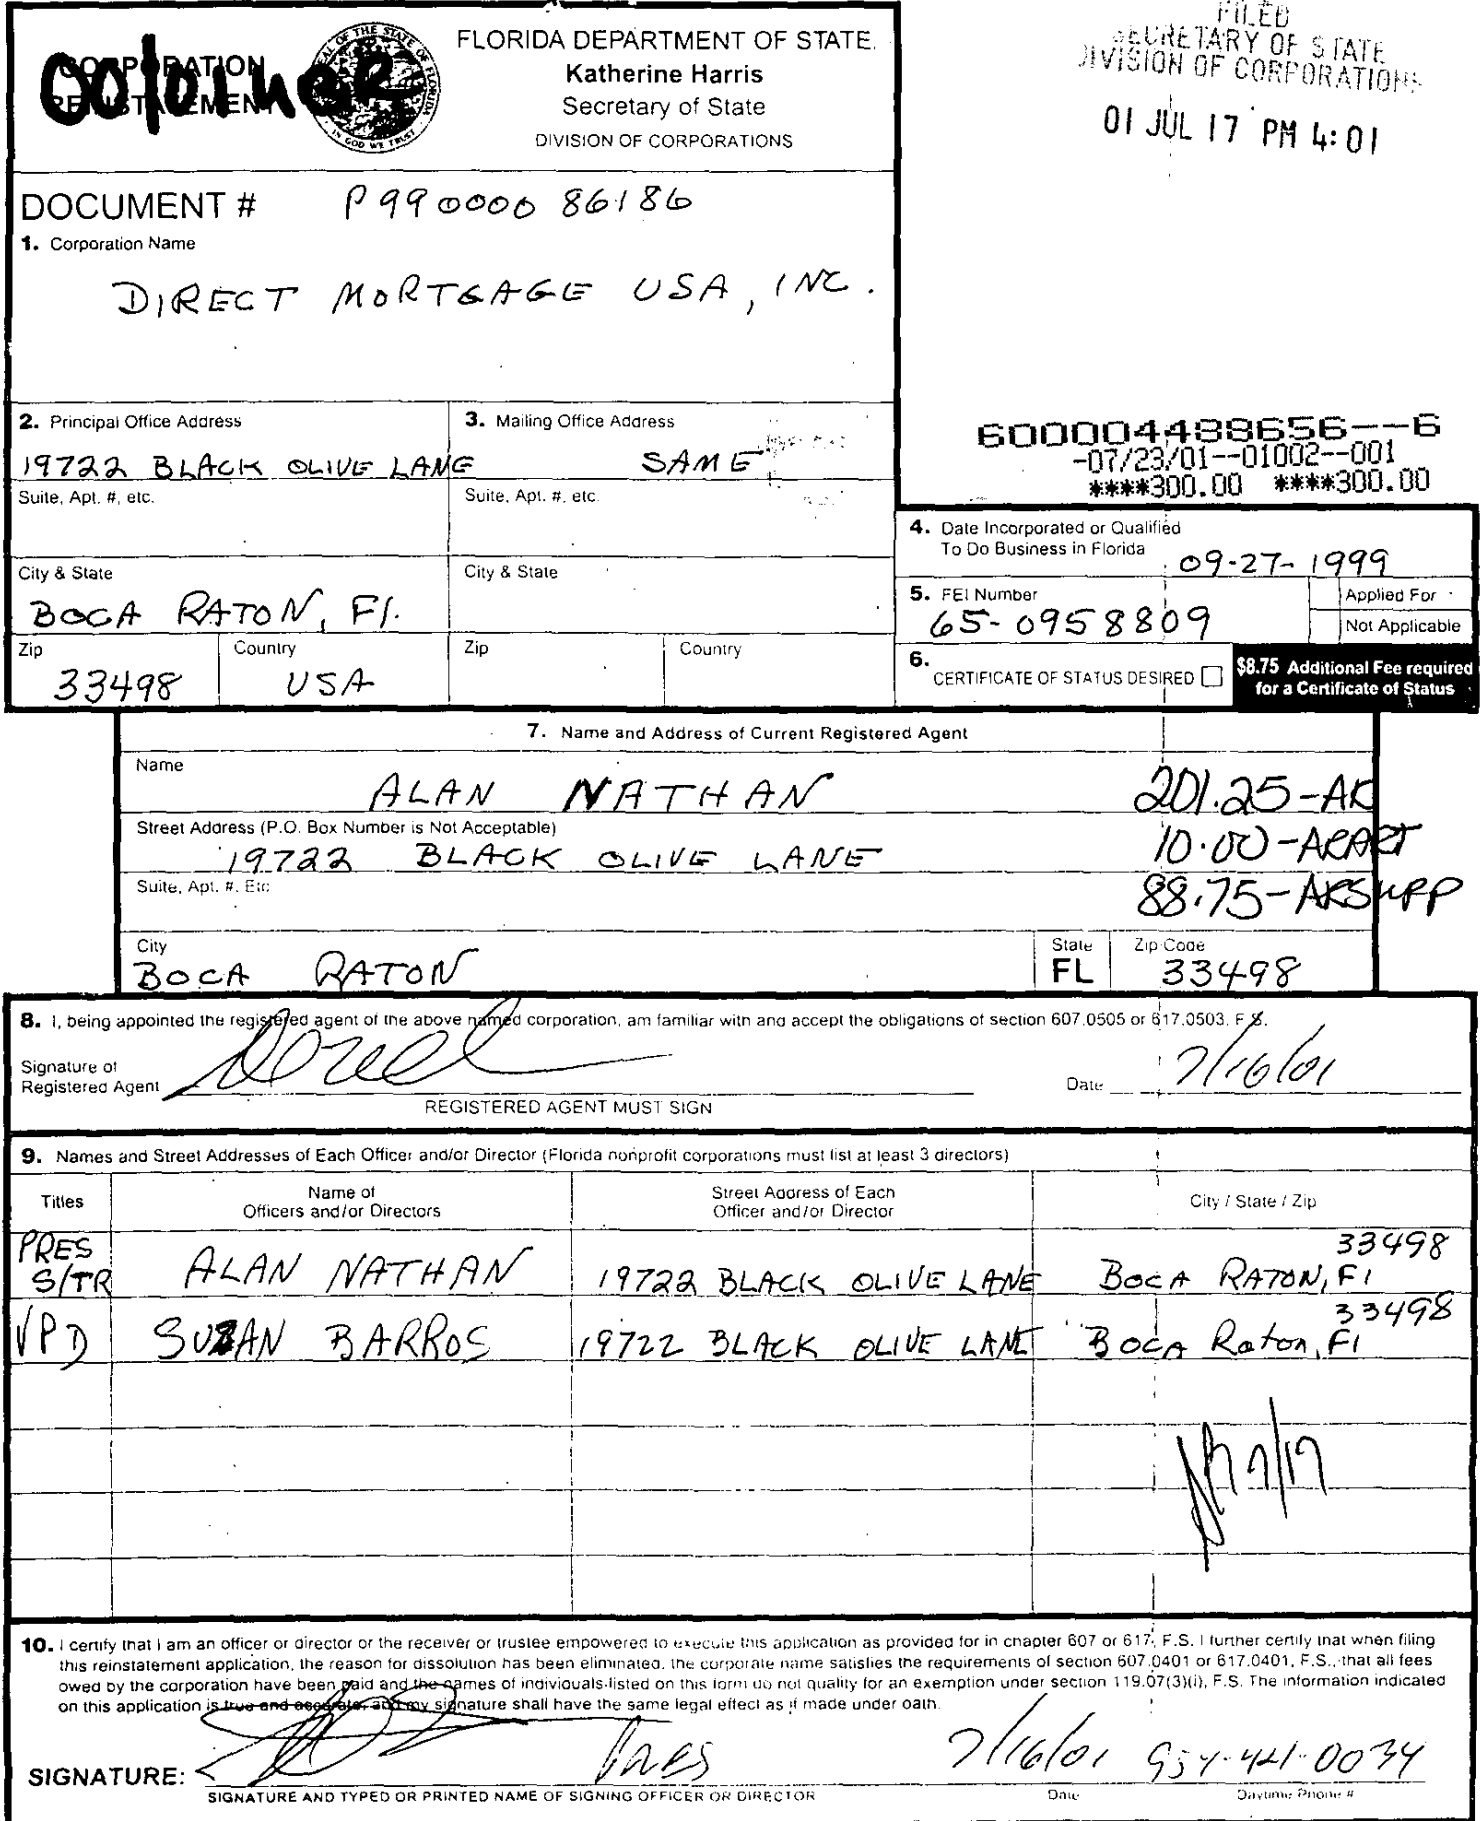 CORPORATION
REINSTATEMENT
00/01 UBR
FLORIDA DEPARTMENT OF STATE
Katherine Harris
Secretary of State
DIVISION OF CORPORATIONS
FILED
SECRETARY OF STATE
DIVISION OF CORPORATIONS
01 JUL 17 PM 4:01
DOCUMENT # P99000086186
1. Corporation Name
DIRECT MORTGAGE USA, INC.
2. Principal Office Address
19722 BLACK OLIVE LANE
3. Mailing Office Address
SAME
Suite, Apt. #, etc.
Suite, Apt. #, etc.
City & State
BOCA RATON, Fl.
City & State
Zip
33498
Country
USA
Zip
Country
600004488656--6
-07/23/01--01002--001
****300.00 ****300.00
4. Date Incorporated or Qualified
To Do Business in Florida 09-27-1999
5. FEI Number
65-0958809
Applied For
Not Applicable
6. CERTIFICATE OF STATUS DESIRED
$8.75 Additional Fee required
for a Certificate of Status
7. Name and Address of Current Registered Agent
Name
ALAN NATHAN
201.25-AR
Street Address (P.O. Box Number is Not Acceptable)
19722 BLACK OLIVE LANE
10.00-ARART
Suite, Apt. #, Etc
88.75-ARSUPP
City
BOCA RATON
State
FL
Zip Code
33498
8. I, being appointed the registered agent of the above named corporation, am familiar with and accept the obligations of section 607.0505 or 617.0503, F.S.
Signature of
Registered Agent
Date 7/16/01
REGISTERED AGENT MUST SIGN
9. Names and Street Addresses of Each Officer and/or Director (Florida nonprofit corporations must list at least 3 directors)
Titles
Name of
Officers and/or Directors
Street Address of Each
Officer and/or Director
City / State / Zip
PRES
S/TR ALAN NATHAN 19722 BLACK OLIVE LANE BOCA RATON, Fl 33498
VPD SUZAN BARROS 19722 BLACK OLIVE LANE BOCA Raton, Fl 33498
7/17
10. I certify that I am an officer or director or the receiver or trustee empowered to execute this application as provided for in chapter 607 or 617, F.S. I further certify that when filing
this reinstatement application, the reason for dissolution has been eliminated, the corporate name satisfies the requirements of section 607.0401 or 617.0401, F.S., that all fees
owed by the corporation have been paid and the names of individuals listed on this form do not qualify for an exemption under section 119.07(3)(i), F.S. The information indicated
on this application is true and accurate, and my signature shall have the same legal effect as if made under oath.
SIGNATURE: PRES 7/16/01 954-421-0034
SIGNATURE AND TYPED OR PRINTED NAME OF SIGNING OFFICER OR DIRECTOR
Date
Daytime Phone #